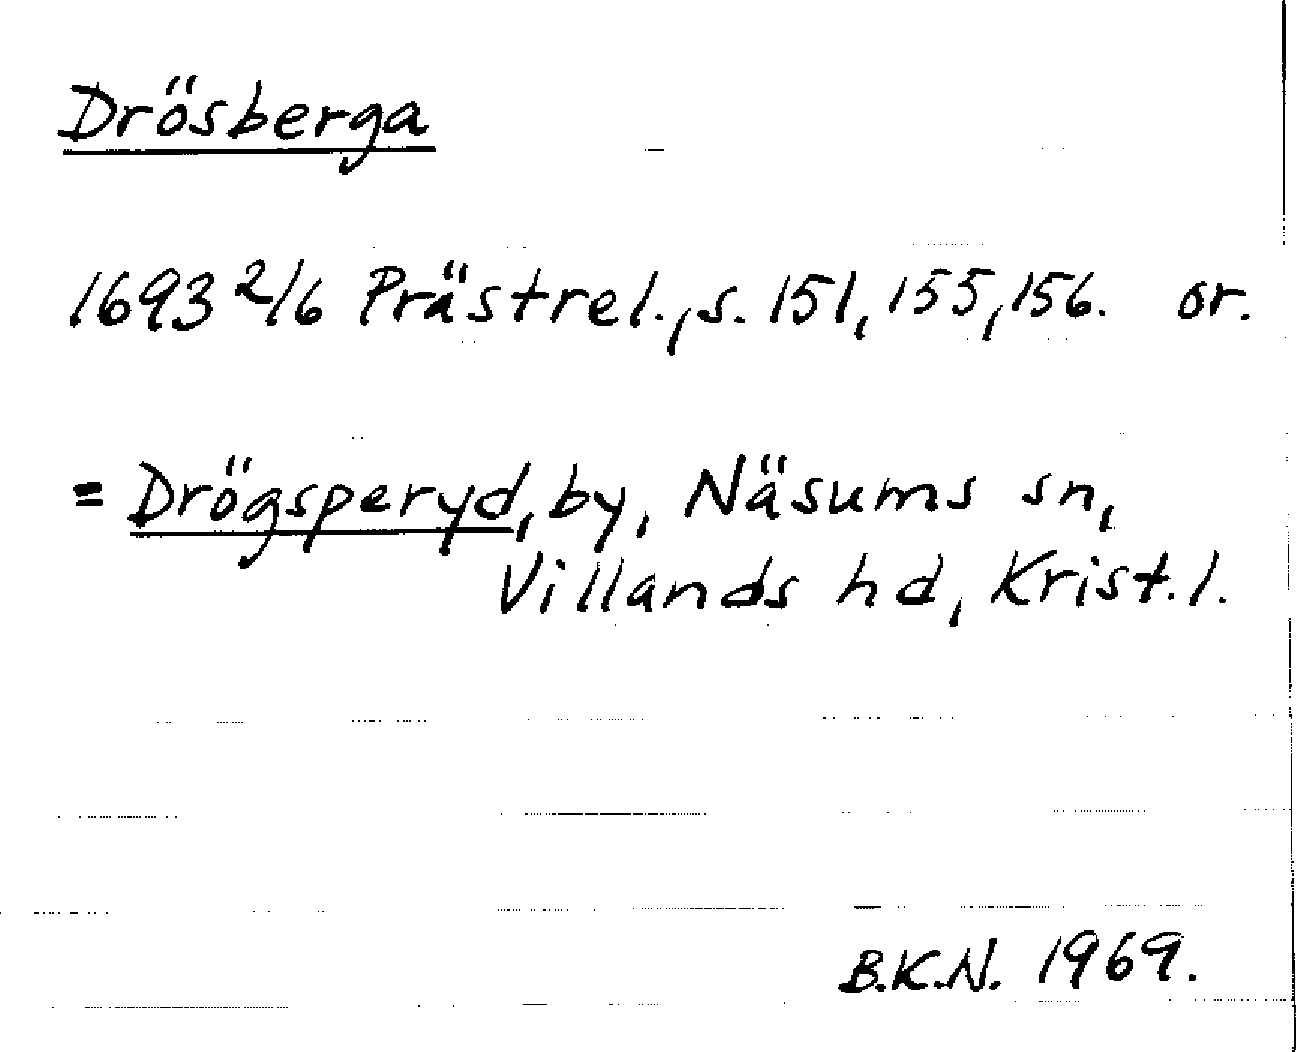 Drösberga
1693 2/6 Prästrel., s. 151, 155, 156. or.
= Drögsperyd, by, Näsums sn,
Villands hd, Krist. l.
B.K.N. 1969.